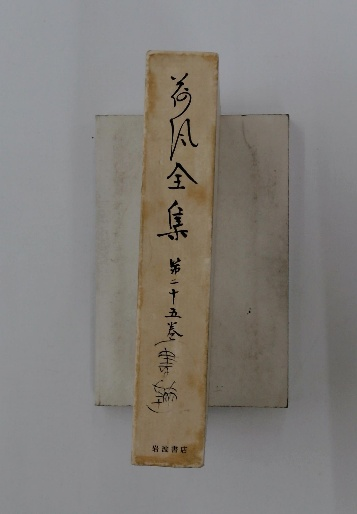 荷風全集
第二十五巻
(書翰)
岩波書店